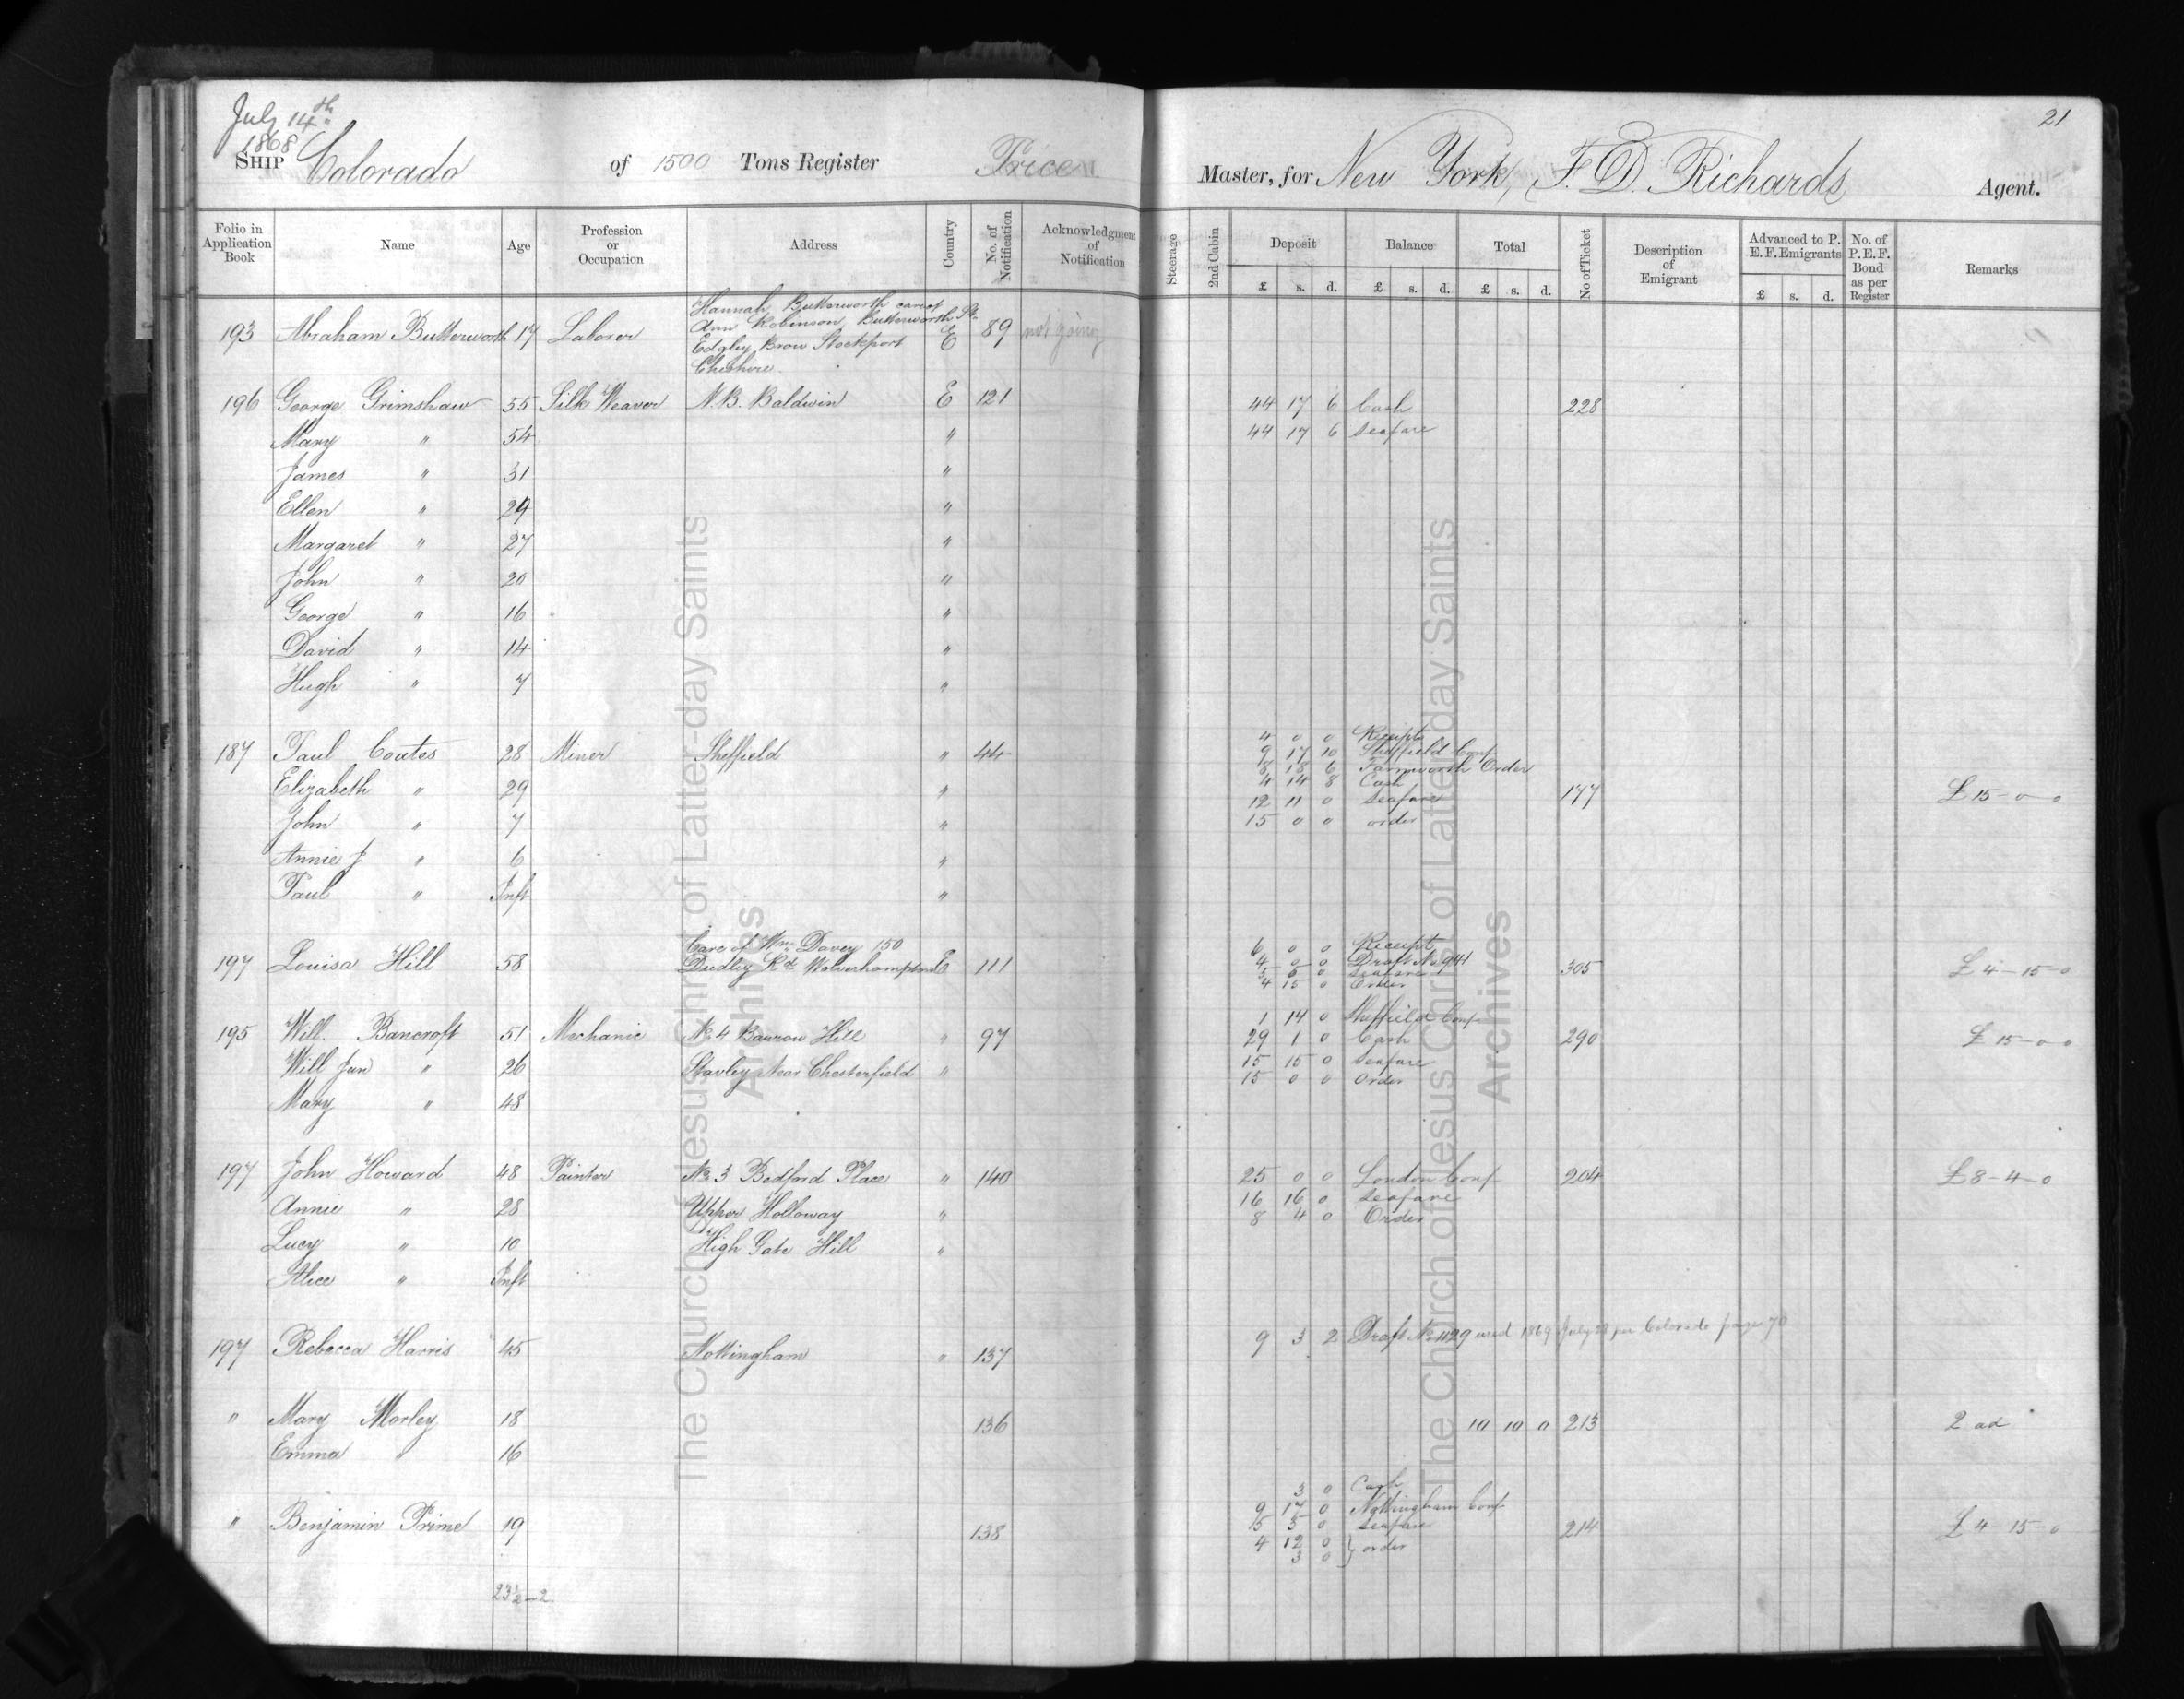 July 14th
1868
SHIP Colorado of 1500 Tons Register Price Master, for New York, F. D. Richards Agent.
21
Folio in Application Book Name Age Profession or Occupation Address Country No. of Notification Acknowledgment of Notification Steerage 2nd Cabin Deposit £ s. d. Balance £ s. d. Total £ s. d. No of Ticket Description of Emigrant Advanced to P. E. F. Emigrants £ s. d. No. of P. E. F. Bond as per Register Remarks
Hannah Butterworth care of
Ann Robinson, Butterworth St.
193 Abraham Butterworth 17 Laborer Edgley Brow Stockport E 89 not going
Cheshire
196 George Grimshaw 55 Silk Weaver N. B. Baldwin E 121 44 17 6 Cash 228
Mary " 54 " 44 17 6 Seafare
James " 31 "
Ellen " 29 "
Margaret " 27 "
John " 20 "
George " 16 "
David " 14 "
Hugh " 7 "
4 0 0 Receipt
187 Paul Coates 28 Miner Sheffield " 44 9 17 10 Sheffield Conf
8 18 6 Farnworth Order
4 14 8 Cash
Elizabeth " 29 " 12 11 0 Seafare 177 £15-0-0
John " 7 " 15 0 0 order
Annie J " 6 "
Paul " Inft "
Care of Wm Davey 150 6 0 0 Receipt
197 Louisa Hill 58 Dudley Rd Wolverhampton E 111 4 0 0 Draft No 941 305 £4-15-0
5 5 0 Seafare
4 15 0 Order
1 14 0 Sheffield Conf
195 Will. Bancroft 51 Mechanic No 4 Barrow Hill " 97 29 1 0 Cash 290 £15-0-0
Will Jun " 26 Stavley Near Chesterfield " 15 15 0 Seafare
15 0 0 Order
Mary " 48
197 John Howard 48 Painter No 3 Bedford Place " 140 25 0 0 London Conf 204 £8-4-0
Annie " 28 Upper Holloway " 16 16 0 Seafare
8 4 0 Order
Lucy " 10 High Gate Hill "
Alice " Inft
197 Rebecca Harris 45 Nottingham " 137 9 3 2 Draft No 1129 used 1869 July 28 per Colorado page 70
" Mary Morley 18 136 10 10 0 213 2 ad
Emma " 16
3 0 Cash
9 17 0 Nottingham Conf
" Benjamin Prime 19 138 5 5 0 Seafare 214 £4-15-0
4 12 0 } order
3 0
23½-2
The Church of Jesus Christ of Latter-day Saints
Archives
The Church of Jesus Christ of Latter-day Saints
Archives